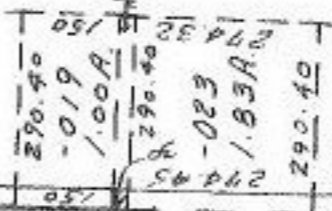 150
274.32
290.40
-019
1.00A.
290.40
-023
1.83A.
290.40
150
274.45